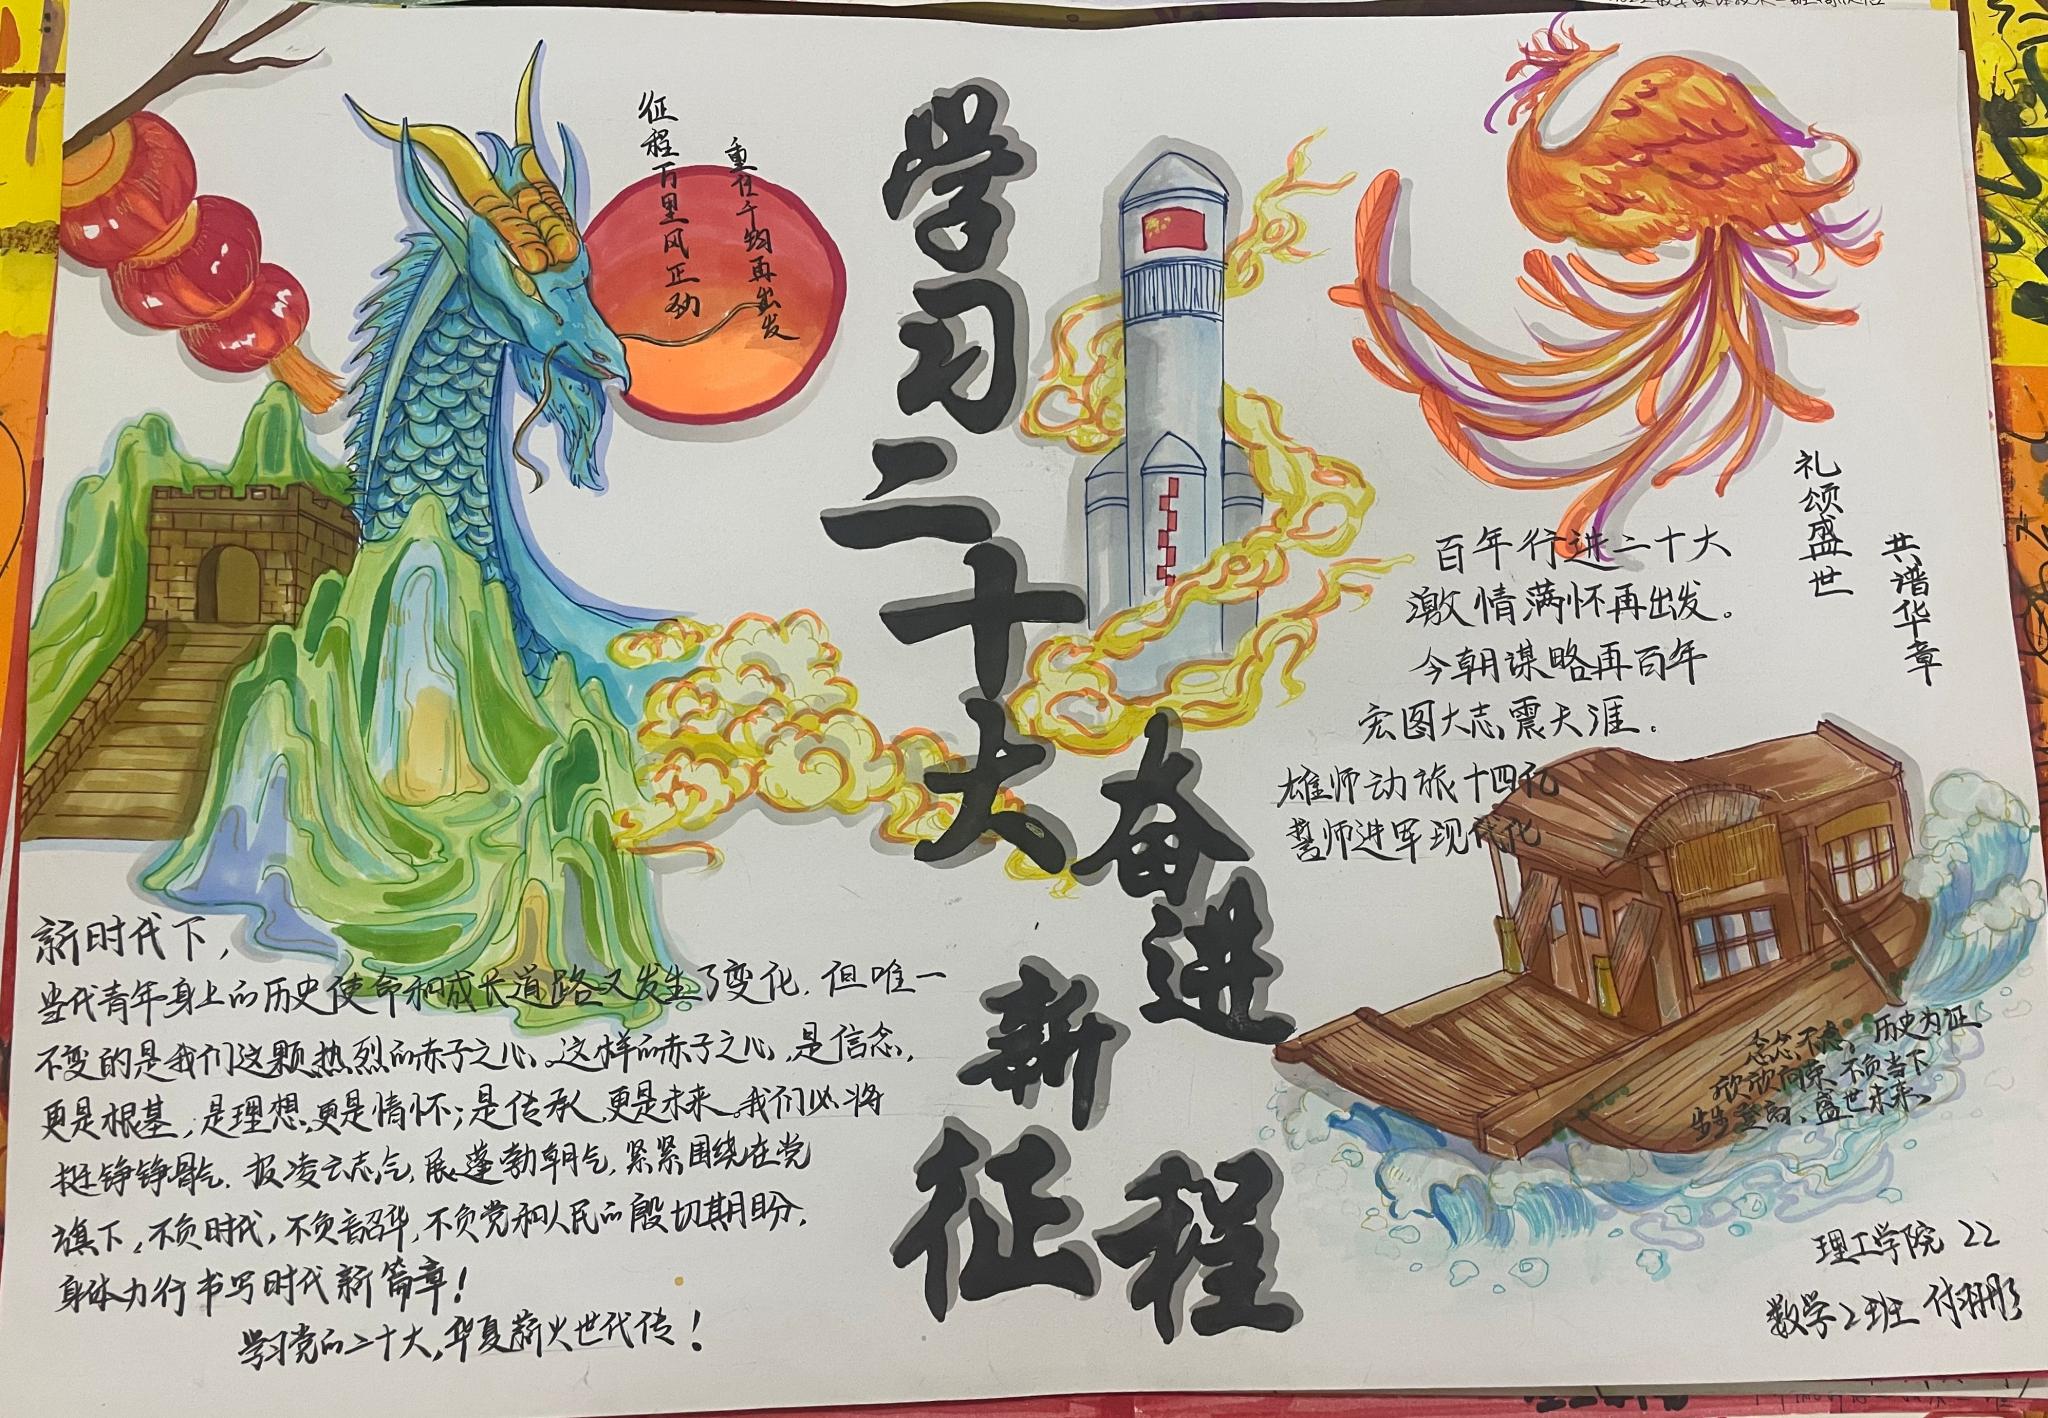 征程万里风正劲
重任千钧再出发
学习二十大
奋进
新
征程
礼颂盛世
共谱华章
百年行进二十大
激情满怀再出发。
今朝谋略再百年
宏图大志震天涯。
雄师动旅十四亿
誓师进军现代化
念念不忘，历史为证
欣欣向荣，不负当下
步步登高，盛世未来。
新时代下，
当代青年身上的历史使命和成长道路又发生了变化，但唯一
不变的是我们这颗热烈的赤子之心。这样的赤子之心，是信念，
更是根基；是理想，更是情怀；是传承，更是未来。我们必将
挺铮铮骨气，报凌云志气，展蓬勃朝气，紧紧围绕在党
旗下，不负时代，不负韶华，不负党和人民的殷切期盼，
身体力行书写时代新篇章！
学习党的二十大，华夏薪火世代传！
理工学院 22
数学2班